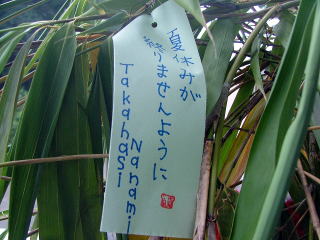 夏休みが
終りませんように
Nanami
Takahasi